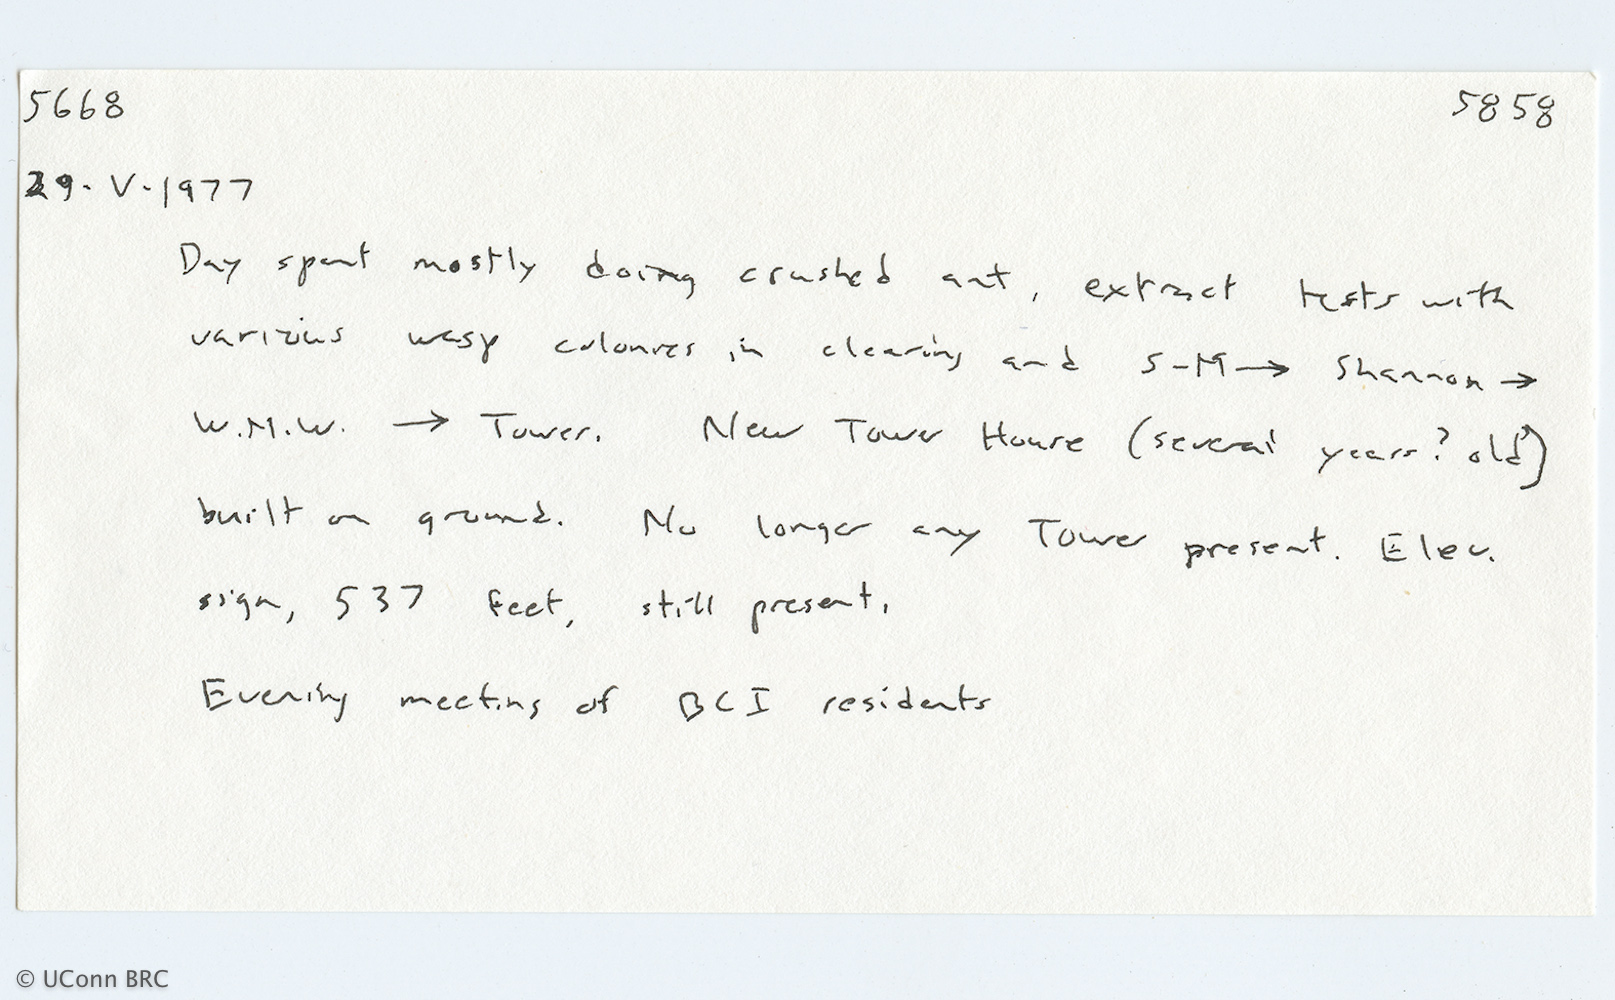 5668 5858
29. V. 1977
Day spent mostly doing crushed ant, extract tests with
various wasp colonies in clearing and S-M → Shannon →
W.M.W. → Tower. New Tower House (several years? old)
built on ground. No longer any Tower present. Elev.
sign, 537 feet, still present.
Evening meeting of BCI residents
© UConn BRC